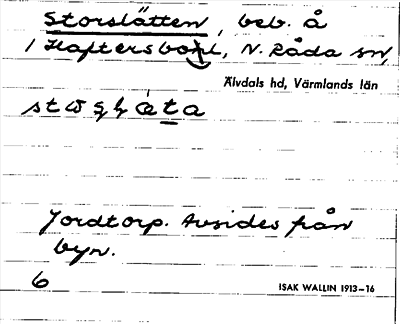 Storslätten, beb. å
1 Haftersbol, N. Råda sn,
Älvdals hd, Värmlands län
Jordtorp. Avsides från
byn.
6
ISAK WALLIN 1913–16